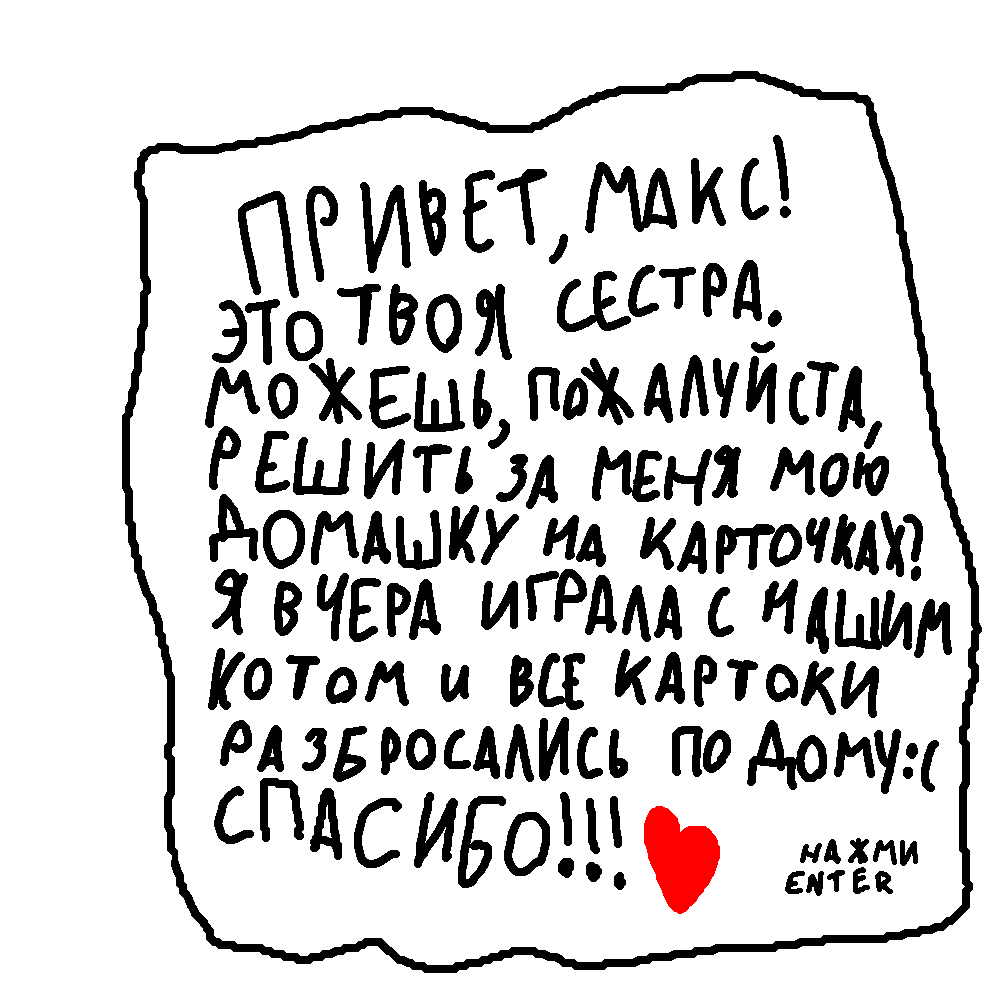 ПРИВЕТ, МАКС!
ЭТО ТВОЯ СЕСТРА.
МОЖЕШЬ, ПОЖАЛУЙСТА,
РЕШИТЬ ЗА МЕНЯ МОЮ
ДОМАШКУ НА КАРТОЧКАХ?
Я ВЧЕРА ИГРАЛА С НАШИМ
КОТОМ И ВСЕ КАРТОКИ
РАЗБРОСАЛИСЬ ПО ДОМУ:(
СПАСИБО!!!
НАЖМИ
ENTER